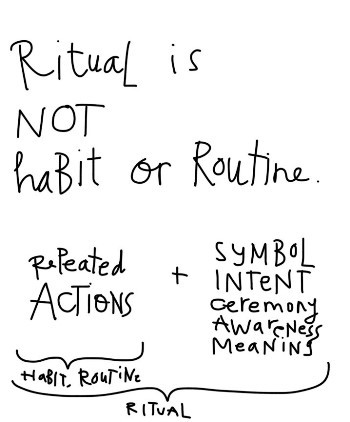 Ritual is
NOT
haBit or Routine.
RePeated
ACTIONS
+
SYMBOL
INTENT
Ceremony
AWAReNeSS
MeANING
HABIT, ROUTINe
RITUAL